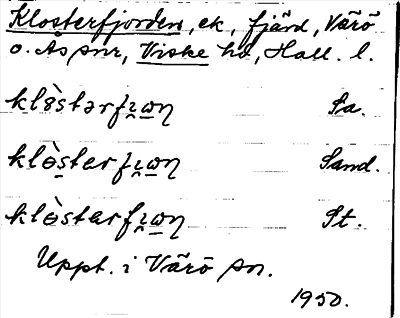 Klosterfjorden, ek, fjärd, Värö
o. Ås snr, Viske hd, Hall. l.
klòstərfi̯ɷn Sa.
klòsterfi̯ɷn Sand.
klòsterfi̯ɷn St.
Uppt. i Värö sn.
1950.